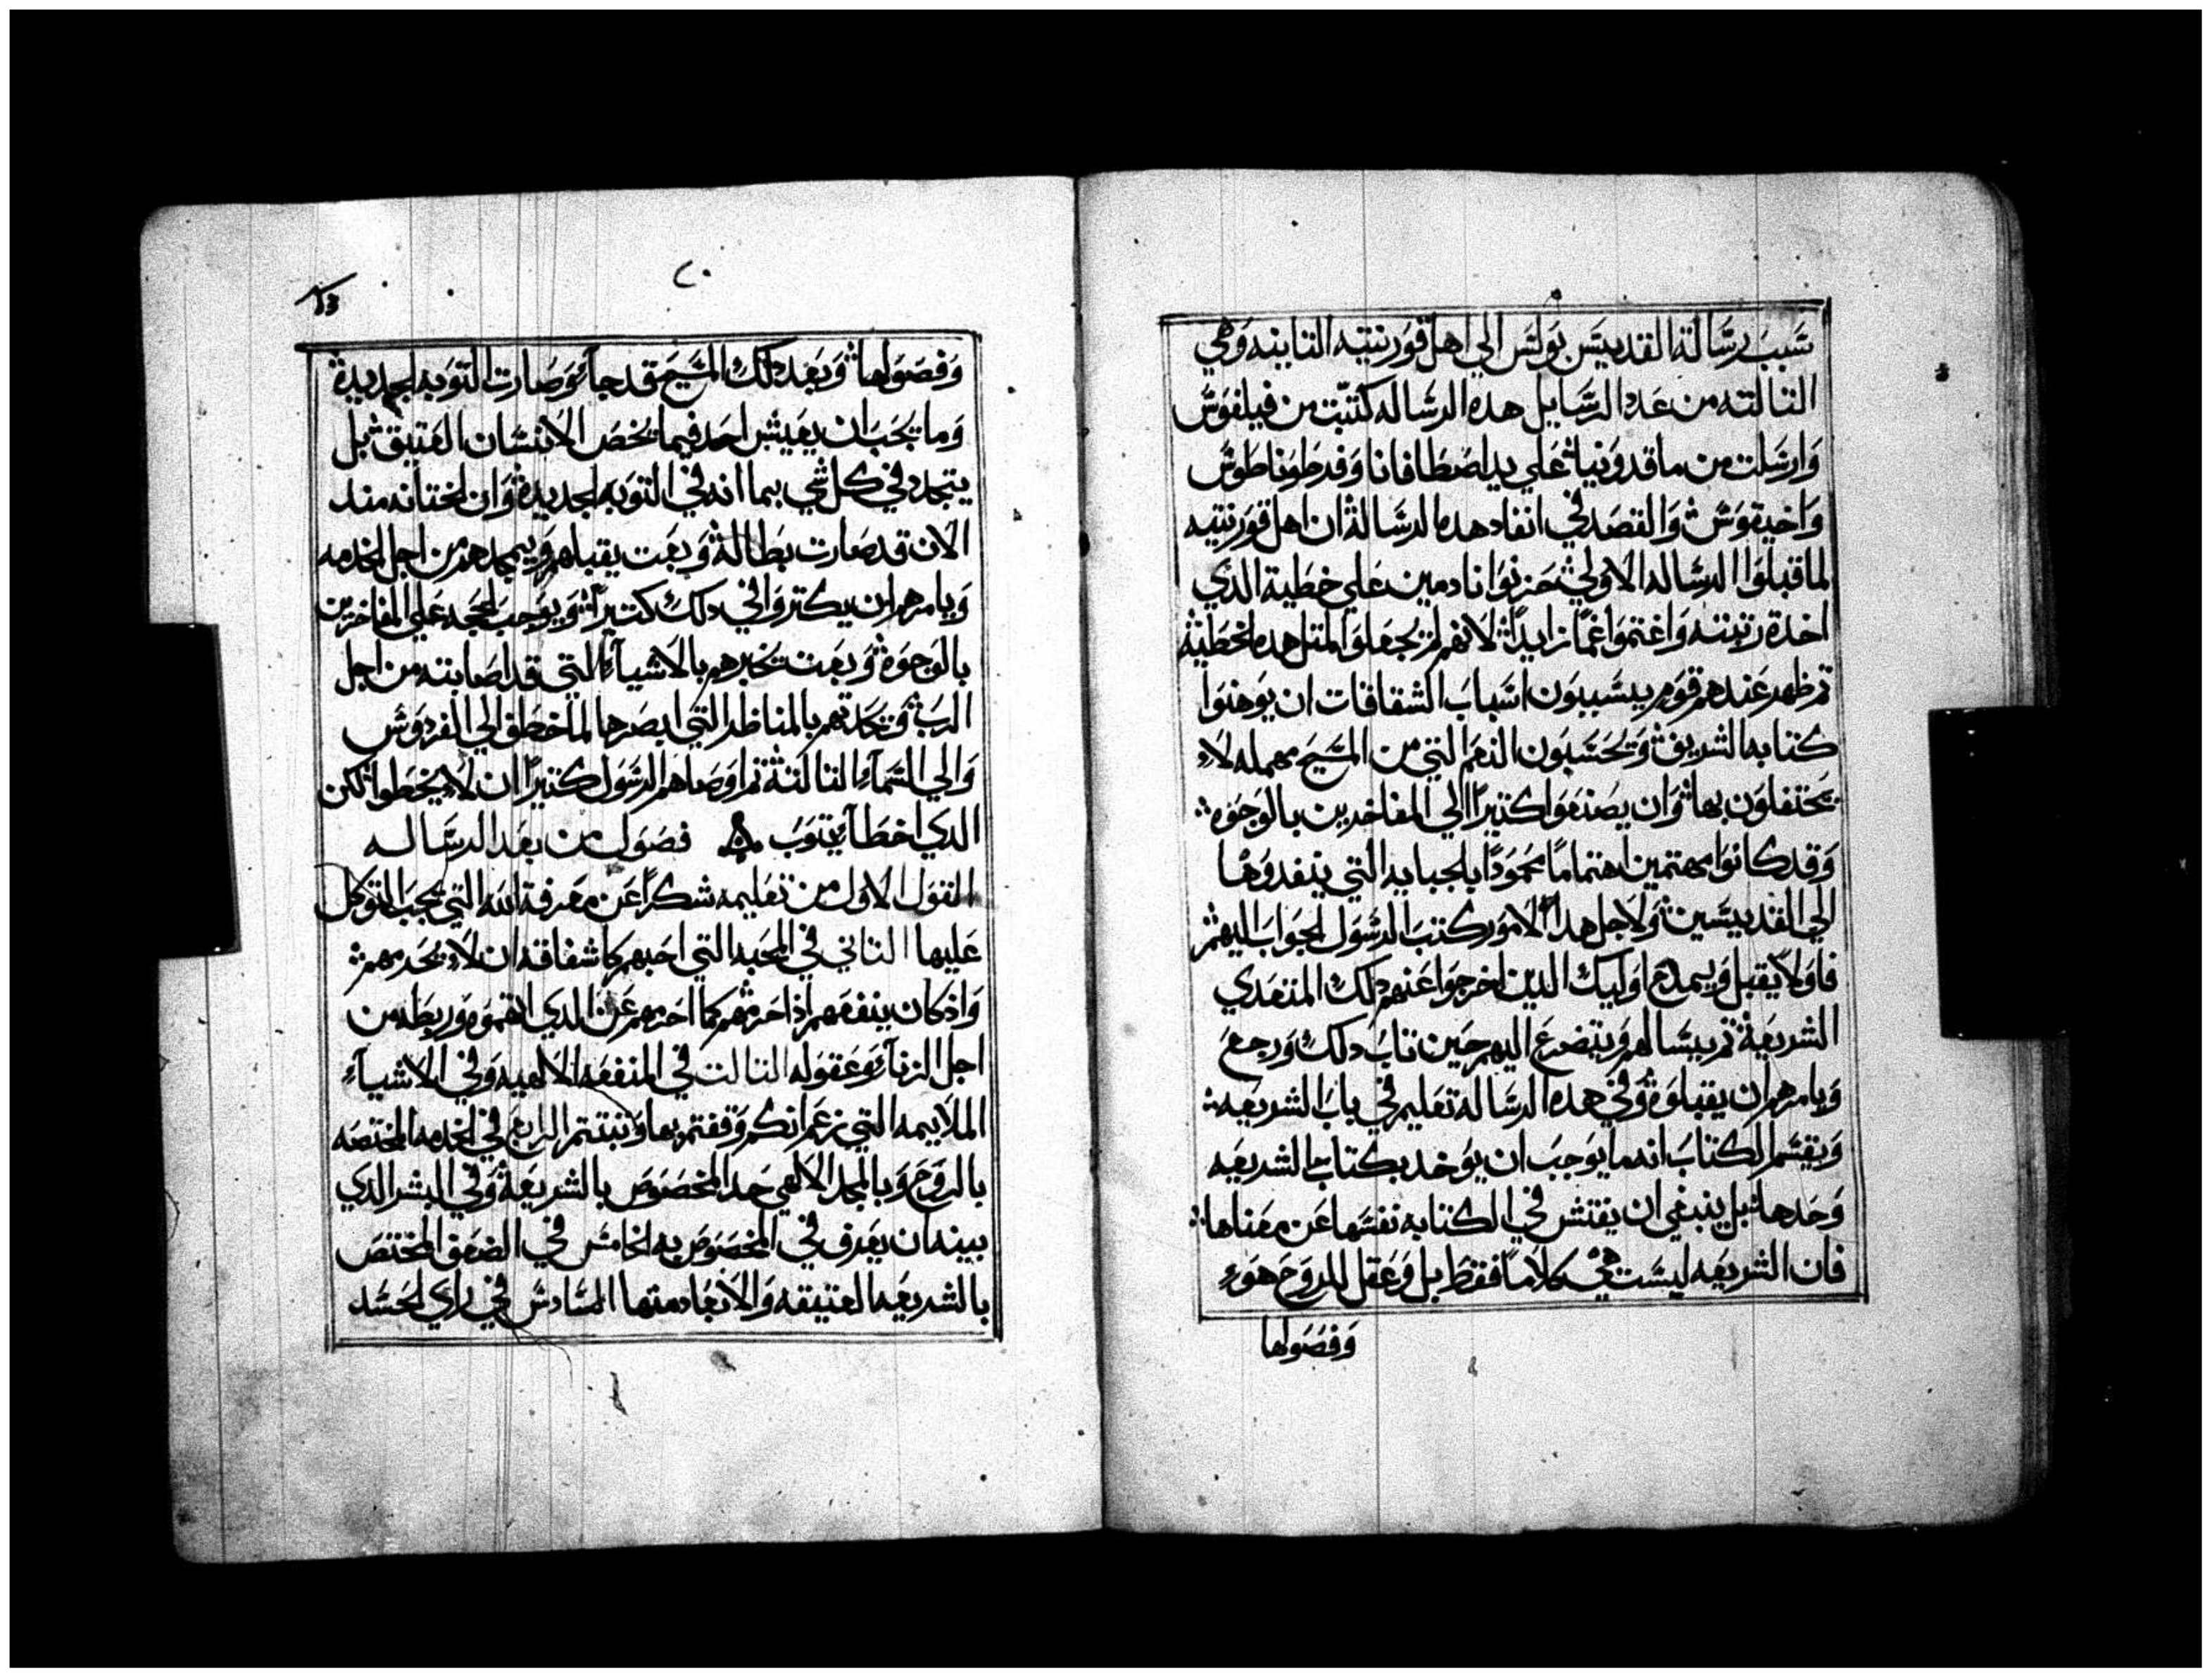 سبب رسالة القديس بولس الي اهل قورنتيه التانيه وهي
التالته من عدد الرسايل هده الرساله كتبت من فيلفوس
وارسلت من ماقدونيا علي يد اصطافانا وفرطوناطوس
واخيقوس والقصد في انفاد هده الرسالة ان اهل قورنتيه
لما قبلوا الرساله الاولي حزنوا نادمين علي خطية الدي
اخدة زينته واغتموا غمًا زايدًا لانهم لم يجعلوا لمتل هده الخطية
تم ظهر عندهم قوم يسببون اسباب الشقاقات ان يوهنوا
كتابه الشريف ويحسبون النعم التي من المسيح مهمله لا
يحتفلون بها وان يصنعوا كتيرًا الي المفاخرين بالوجوه
وقد كانوا مهتمين اهتمامًا محمودًا بالجبايه التي ينفدوها
الي القديسين ولاجل هدا الامور كتب الرسول الجواب اليهم
فاولا يقبل ويمدح اوليك الدين اخرجوا عنهم دلك المتعدي
الشريعة تم يسالهم ويتضرع اليهم حين تاب دلك ورجع
ويامرهم ان يقبلوة وفي هده الرساله تعليم في باب الشريعه
ويقسم الكتاب انه ما يوجب ان يوخد بكتاب الشريعه
وحدها بل ينبغي ان يفتش في الكتابه نفسها عن معناها
فان الشريعه ليست هي كلامًا فقط بل وعقل الروح هو
وفصولها
٢٠
وفصولها وبعد دلك المسيح قد جآ وصارت التوبه الجديدة
وما يجب ان يعيش احد فيما يخص الانسان العتيق بل
يتجدد في كل شي بما انه في التوبه الجديدة وان الختانه مند
الان قد صارت بطالة وبعت يقبلهم ويمجدهم من اجل الخدمه
ويامرهم ان يكتروا في دلك كتيرًا ويوجب الحجه علي المفاخرين
بالوجوة وبعت تخبرهم بالاشيآ التي قد اصابته من اجل
الرب وتحدتهم بالمناظر التي ابصرها لما خطف الي الفردوس
والي السمآ التالتة تم اوصاهم الرسول كتيرًا ان لا يخطوا لكن
الدي اخطا يتوب فصول من بعد الرساله
القول الاول من تعليمه شكرًا عن معرفة الله التي يجب التوكل
عليها التاني في المحبه التي احبهم كاشفاقه ان لا يحدمهم
واد كان ينفعهم ادا حرمهم كما احزمهم عن الدي اتهموة وربطه من
اجل الزنآ وعقوله التالت في المنفعه الالهيه وفي الاشيآ
الملايمه التي زعم انكم وقفتم بها وتبتتم الرابع في الخدمه المختصه
بالروح وبالمجد الالهي حد المخصوص بالشريعة وفي البشر الدي
بينه ان يعرف في المخصوص به الخامس في الضعف المختص
بالشريعه العتيقه والانعاد منها السادس في راي الحسد